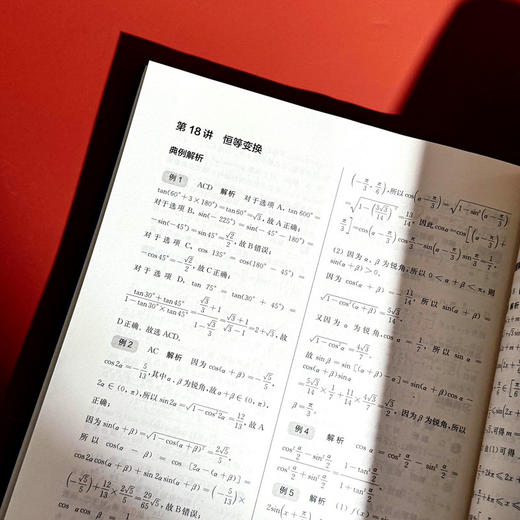 第 18 讲 恒等变换
典例解析
例 1 ACD 解析 对于选项 A, tan 600°=
tan(60°+3×180°)=tan60°=√3, 故 A 正确;
对于选项 B, sin(-225°)=sin(-45°-180°)=
-sin(-45°)=sin45°=√2/2, 故 B 错误;
对于选项 C, cos 135°=cos(180°-45°)=
-cos45°=-√2/2, 故 C 正确;
对于选项 D, tan 75°=tan(30°+45°)=
(tan30°+tan45°)/(1-tan30°×tan45°)=(√3/3+1)/(1-√3/3)=(√3+1)/(√3-1)=2+√3, 故
D 正确. 故选 ACD.
例 2 AC 解析 因为 cos(α+β)=-√5/5,
cos2α=-5/13, 其中 α, β 为锐角, 故 α+β∈(0, π),
2α∈(0, π), 所以 sin2α=√(1-cos²2α)=12/13, 故 A
正确;
因为 sin(α+β)=√(1-cos(α+β)²)=2√5/5,
所以 cos(α-β)=cos[2α-(α+β)]=
cos2αcos(α+β)+sin2αsin(α+β)=(-5/13)×
(-√5/5)+12/13×2√5/5=29√5/65, 故 B 错误;
cos α cos β =
(-π/3, π/6), 所以 cos(α-π/3)=√(1-sin²(α-π/3))
=√(1-(5√3/14)²)=13/14, 因此 cosα=cos[(α-π/3)+
π/3]=cos(α-π/3)cosπ/3-sin(α-π/3)sinπ/3=1/7.
(2) 因为 α, β 为锐角, 所以 0<α+β<π, 则
sin(α+β)>0,
因为 cos(α+β)=-11/14, 所以 sin(α+β)=
√(1-cos²(α+β))=5√3/14,
又因为 α 为锐角, cosα=1/7, 所以 sinα=
√(1-cos²α)=4√3/7,
故 sinβ=sin[(α+β)-α]=sin(α+β)cosα-
cos(α+β)sinα
=5√3/14×1/7+11/14×4√3/7=√3/2, 因为 β 为锐角, 所以
β=π/3.
例 4 解析 cosα=cos²α/2-sin²α/2=
(cos²α/2-sin²α/2)/(cos²α/2+sin²α/2)=(1-tan²α/2)/(1+tan²α/2).
例 5 解析 (1) f(x)=
2sin(x+